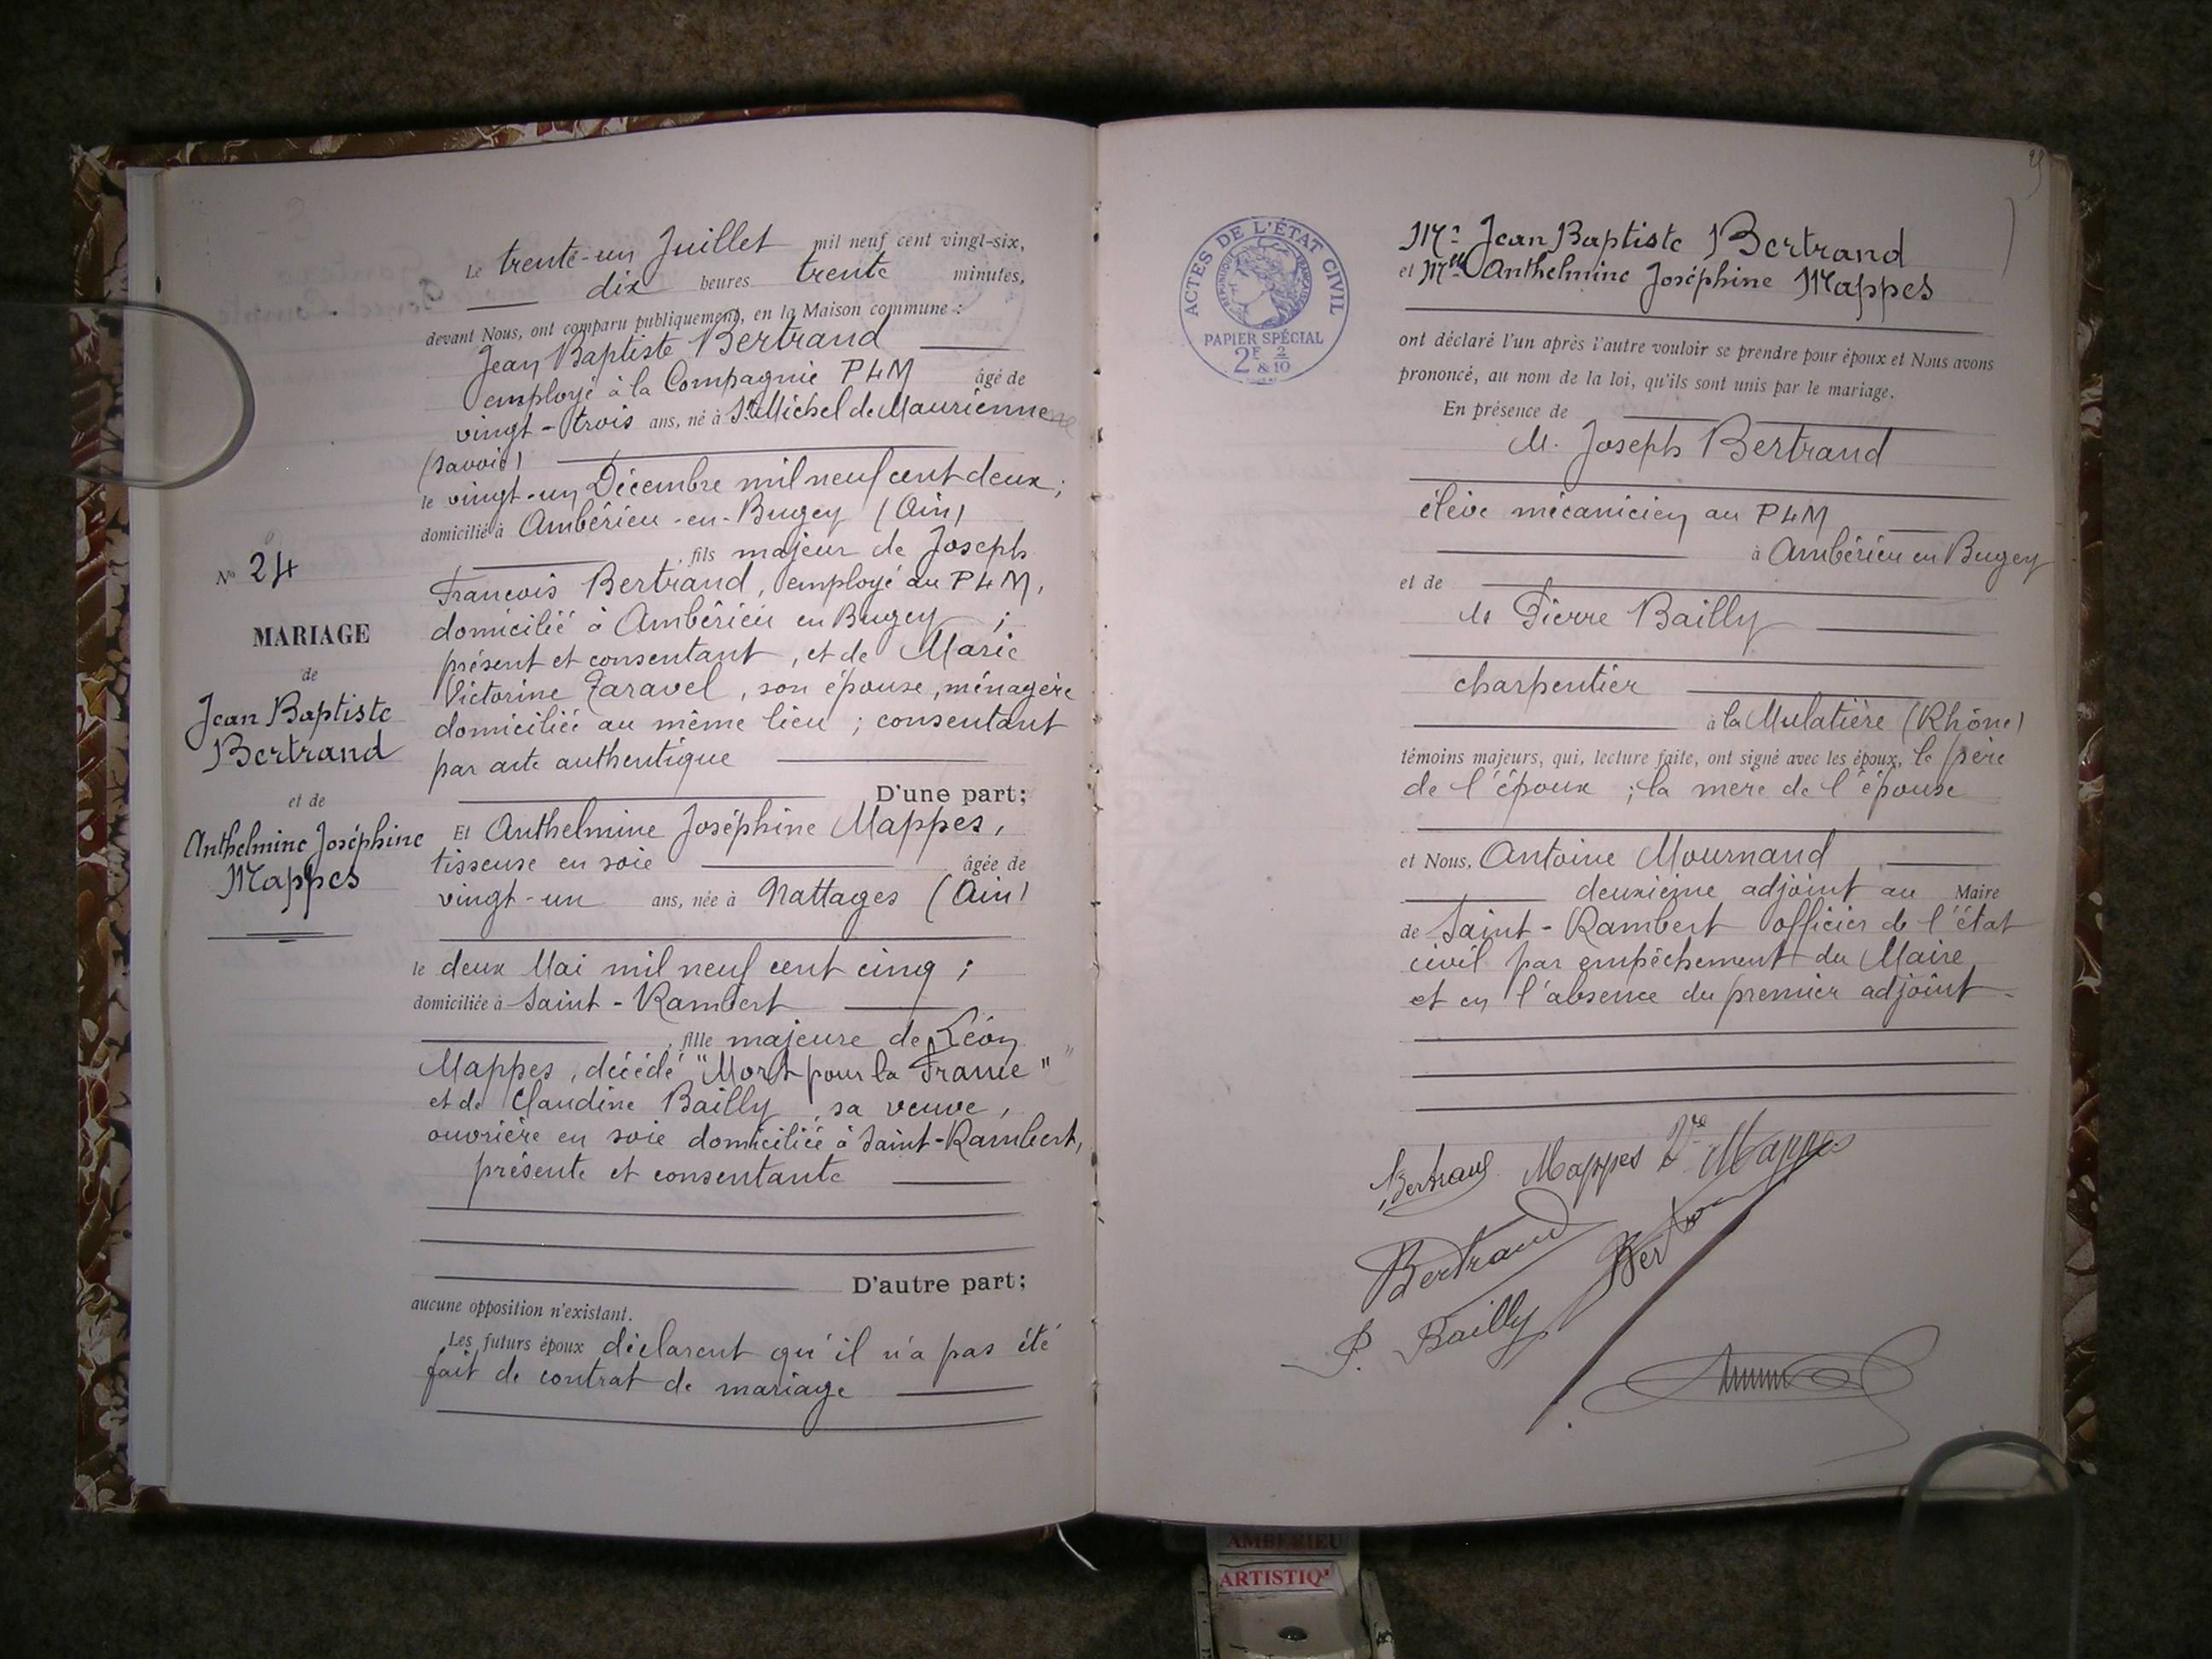 Le trente-un Juillet mil neuf cent vingt-six,
dix heures trente minutes,
devant Nous, ont comparu publiquement, en la Maison commune :
Jean Baptiste Bertrand
employé à la Compagnie PLM âgé de
vingt-trois ans, né à St Michel de Maurienne
(Savoie)
le vingt-un Décembre mil neuf cent deux ;
domicilié à Ambérieu-en-Bugey (Ain)
, fils majeur de Joseph
François Bertrand, employé au PLM,
domicilié à Ambérieu en Bugey ;
présent et consentant, et de Marie
Victorine Taravel, son épouse, ménagère
domiciliée au même lieu ; consentant
par acte authentique
D'une part;
Et Anthelmine Joséphine Mappes,
tisseuse en soie âgée de
vingt-un ans, née à Nattages (Ain)
le deux Mai mil neuf cent cinq ;
domiciliée à Saint-Rambert
, fille majeure de Léon
Mappes, décédé "Mort pour la France"
et de Claudine Bailly, sa veuve,
ouvrière en soie domiciliée à Saint-Rambert,
présente et consentante
D'autre part;
aucune opposition n'existant.
Les futurs époux déclarent qu'il n'a pas été
fait de contrat de mariage
No 24
MARIAGE
de
Jean Baptiste
Bertrand
et de
Anthelmine Joséphine
Mappes
ACTES DE L'ÉTAT CIVIL
PAPIER SPÉCIAL
2F & 2/10
Mr Jean Baptiste Bertrand
et Melle Anthelmine Joséphine Mappes
ont déclaré l'un après l'autre vouloir se prendre pour époux et Nous avons
prononcé, au nom de la loi, qu'ils sont unis par le mariage.
En présence de
M. Joseph Bertrand
élève mécanicien au PLM
à Ambérieu en Bugey
et de
M Pierre Bailly
charpentier
à la Mulatière (Rhône)
témoins majeurs, qui, lecture faite, ont signé avec les époux, le père
de l'époux ; la mère de l'épouse
et Nous, Antoine Mournand
deuxième adjoint au Maire
de Saint-Rambert officier de l'état
civil par empêchement du Maire
et en l'absence du premier adjoint.
Bertrand Mappes Vve Mappes
Bertrand
P. Bailly
AMBERIEU
ARTISTIQ'